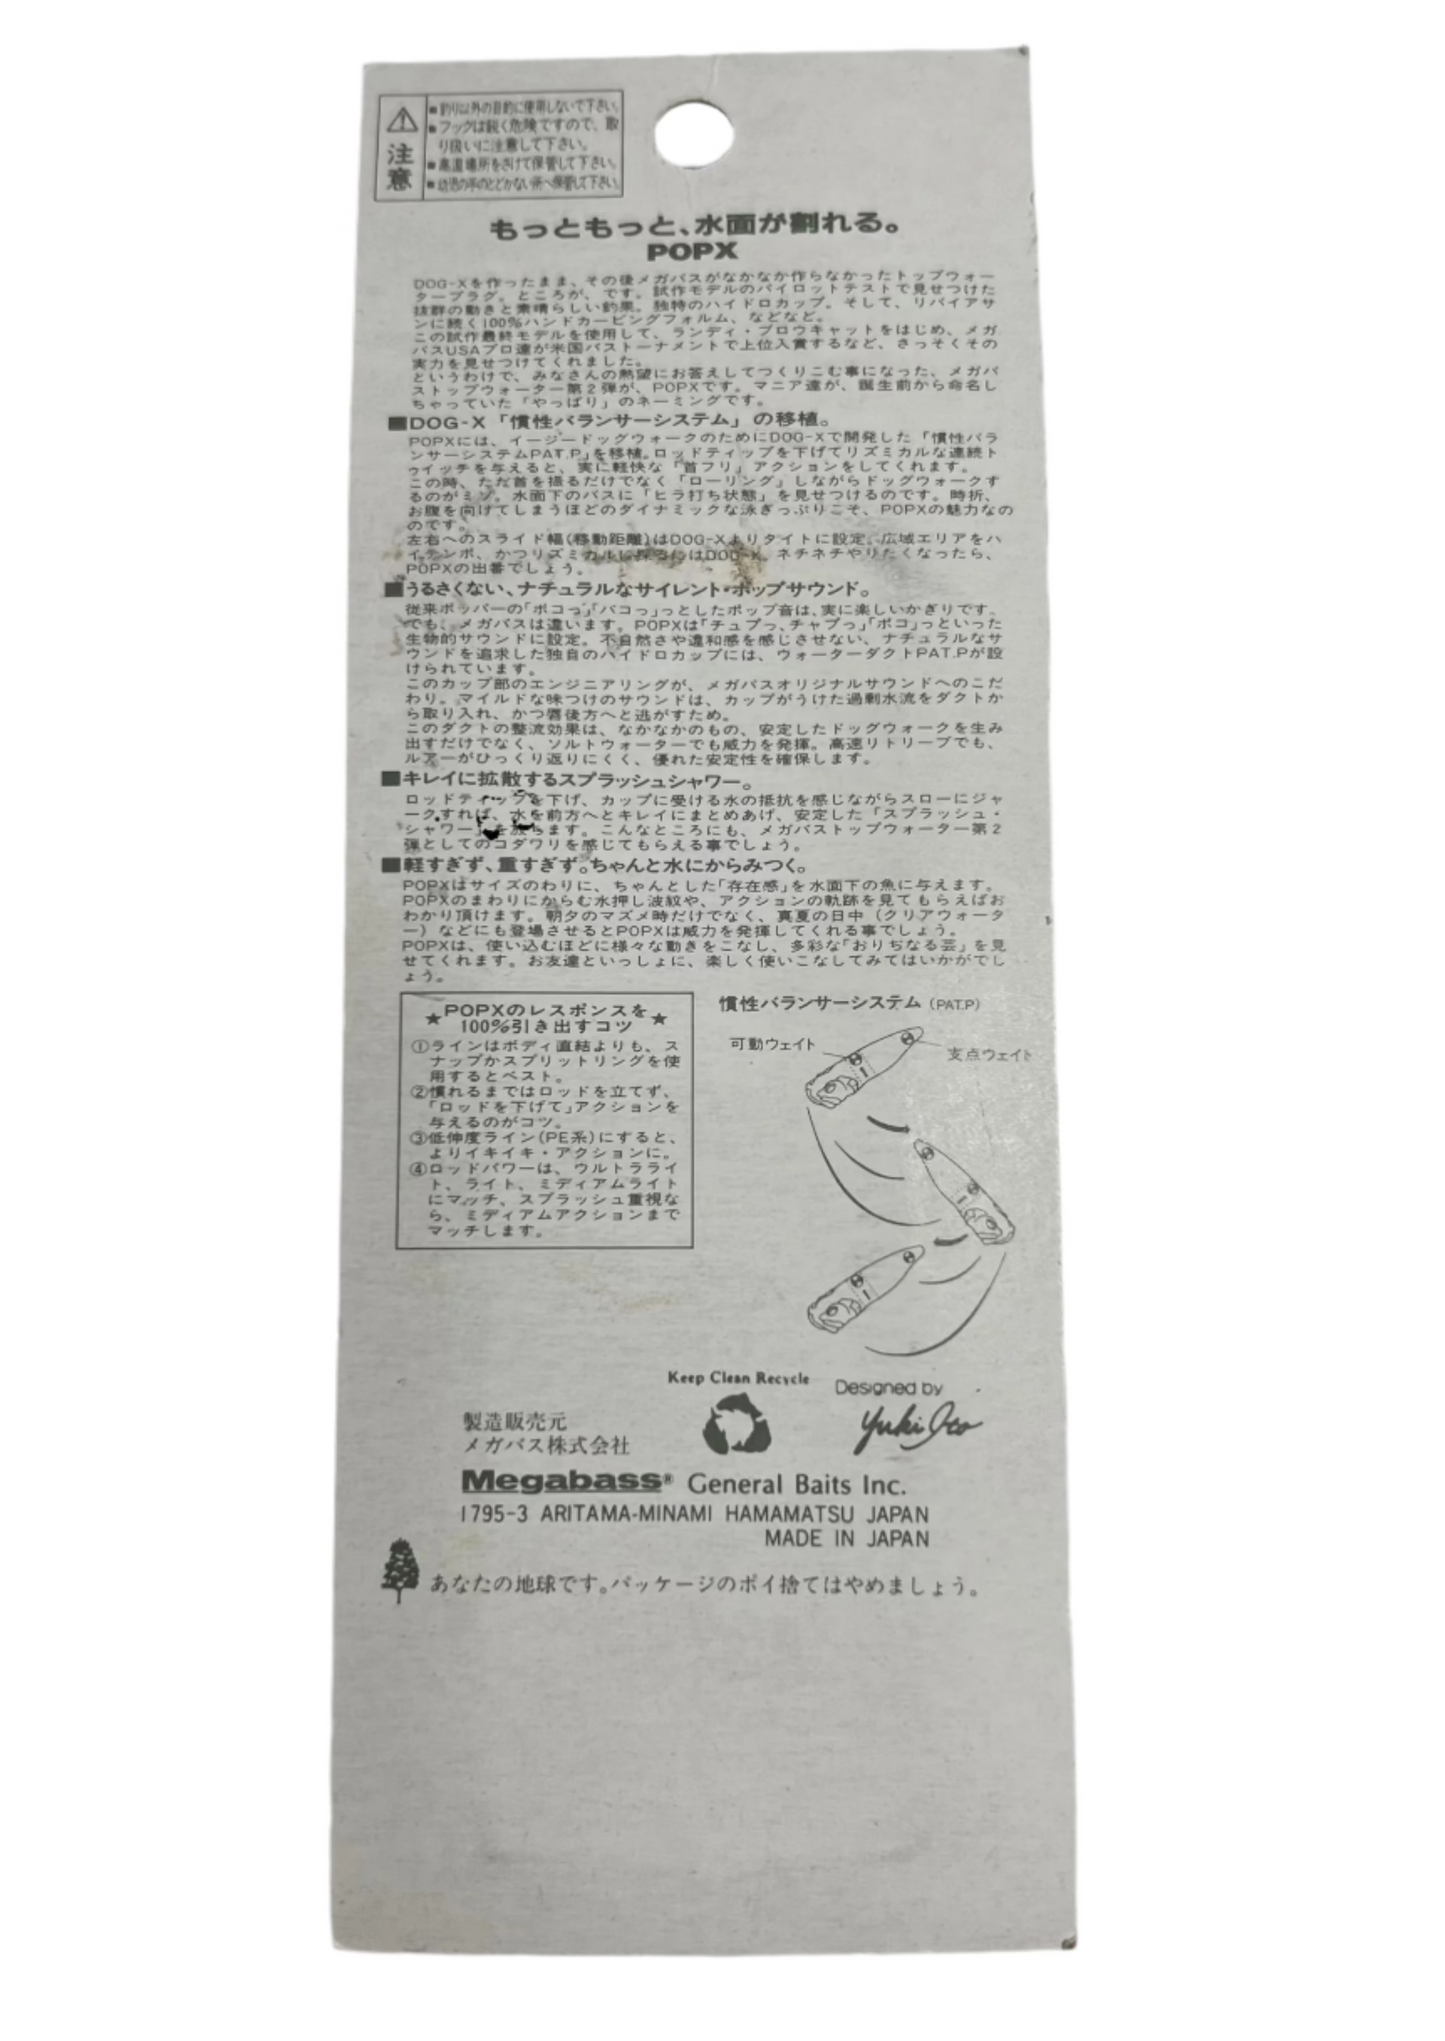 注意
■釣り以外の目的に使用しないで下さい。
■フックは鋭く危険ですので、取
り扱いに注意して下さい。
■高温場所をさけて保管して下さい。
■幼児の手のとどかない所へ保管して下さい。
もっともっと、水面が割れる。
POPX
DOG-Xを作ったまま、その後メガバスがなかなか作らなかったトップウォー
タープラグ。ところが、です。試作モデルのパイロットテストで見せつけた
抜群の動きと素晴らしい釣果。独特のハイドロカップ。そして、リバイアサ
ンに続く100%ハンドカービングフォルム、などなど。
この試作最終モデルを使用して、ランディ・ブロウキャットをはじめ、メガ
バスUSAプロ達が米国バストーナメントで上位入賞するなど、さっそくその
実力を見せつけてくれました。
というわけで、みなさんの熱望にお答えしてつくりこむ事になった、メガバ
ストップウォーター第2弾が、POPXです。マニア達が、誕生前から命名し
ちゃっていた「やっぱり」のネーミングです。
■DOG-X「慣性バランサーシステム」の移植。
POPXには、イージードッグウォークのためにDOG-Xで開発した「慣性バラ
ンサーシステムPAT.P」を移植。ロッドティップを下げてリズミカルな連続ト
ゥイッチを与えると、実に軽快な「首フリ」アクションをしてくれます。
この時、ただ首を振るだけでなく「ローリング」しながらドッグウォークす
るのがミソ。水面下のバスに「ヒラ打ち状態」を見せつけるのです。時折、
お腹を向けてしまうほどのダイナミックな泳ぎっぷりこそ、POPXの魅力なの
のです。
左右へのスライド幅(移動距離)はDOG-Xよりタイトに設定。広域エリアをハ
イテンポ、かつリズミカルに探るにはDOG-X、ネチネチやりたくなったら、
POPXの出番でしょう。
■うるさくない、ナチュラルなサイレント・ポップサウンド。
従来ポッパーの「ポコっ」「バコっ」っとしたポップ音は、実に楽しいかぎりです。
でも、メガバスは違います。POPXは「チュブっ、チャブっ」「ポコ」っといった
生物的サウンドに設定。不自然さや違和感を感じさせない、ナチュラルなサ
ウンドを追求した独自のハイドロカップには、ウォーターダクトPAT.Pが設
けられています。
このカップ部のエンジニアリングが、メガバスオリジナルサウンドへのこだ
わり。マイルドな味つけのサウンドは、カップがうけた過剰水流をダクトか
ら取り入れ、かつ唇後方へと逃がすため。
このダクトの整流効果は、なかなかのもの、安定したドッグウォークを生み
出すだけでなく、ソルトウォーターでも威力を発揮。高速リトリーブでも、
ルアーがひっくり返りにくく、優れた安定性を確保します。
■キレイに拡散するスプラッシュシャワー。
ロッドティップを下げ、カップに受ける水の抵抗を感じながらスローにジャ
ークすれば、水を前方へとキレイにまとめあげ、安定した「スプラッシュ・
シャワー」を放ちます。こんなところにも、メガバストップウォーター第2
弾としてのコダワリを感じてもらえる事でしょう。
■軽すぎず、重すぎず。ちゃんと水にからみつく。
POPXはサイズのわりに、ちゃんとした「存在感」を水面下の魚に与えます。
POPXのまわりにからむ水押し波紋や、アクションの軌跡を見てもらえばお
わかり頂けます。朝夕のマズメ時だけでなく、真夏の日中（クリアウォータ
ー）などにも登場させるとPOPXは威力を発揮してくれる事でしょう。
POPXは、使い込むほどに様々な動きをこなし、多彩な「おりぢなる芸」を見
せてくれます。お友達といっしょに、楽しく使いこなしてみてはいかがでし
ょう。
★POPXのレスポンスを★
100%引き出すコツ
①ラインはボディ直結よりも、ス
ナップかスプリットリングを使
用するとベスト。
②慣れるまではロッドを立てず、
「ロッドを下げて」アクションを
与えるのがコツ。
③低伸度ライン(PE系)にすると、
よりイキイキ・アクションに。
④ロッドパワーは、ウルトラライ
ト、ライト、ミディアムライト
にマッチ、スプラッシュ重視な
ら、ミディアムアクションまで
マッチします。
慣性バランサーシステム (PAT.P)
可動ウェイト
支点ウェイト
Keep Clean Recycle
Designed by
Yuki Ito
製造販売元
メガバス株式会社
Megabass® General Baits Inc.
1795-3 ARITAMA-MINAMI HAMAMATSU JAPAN
MADE IN JAPAN
あなたの地球です。パッケージのポイ捨てはやめましょう。